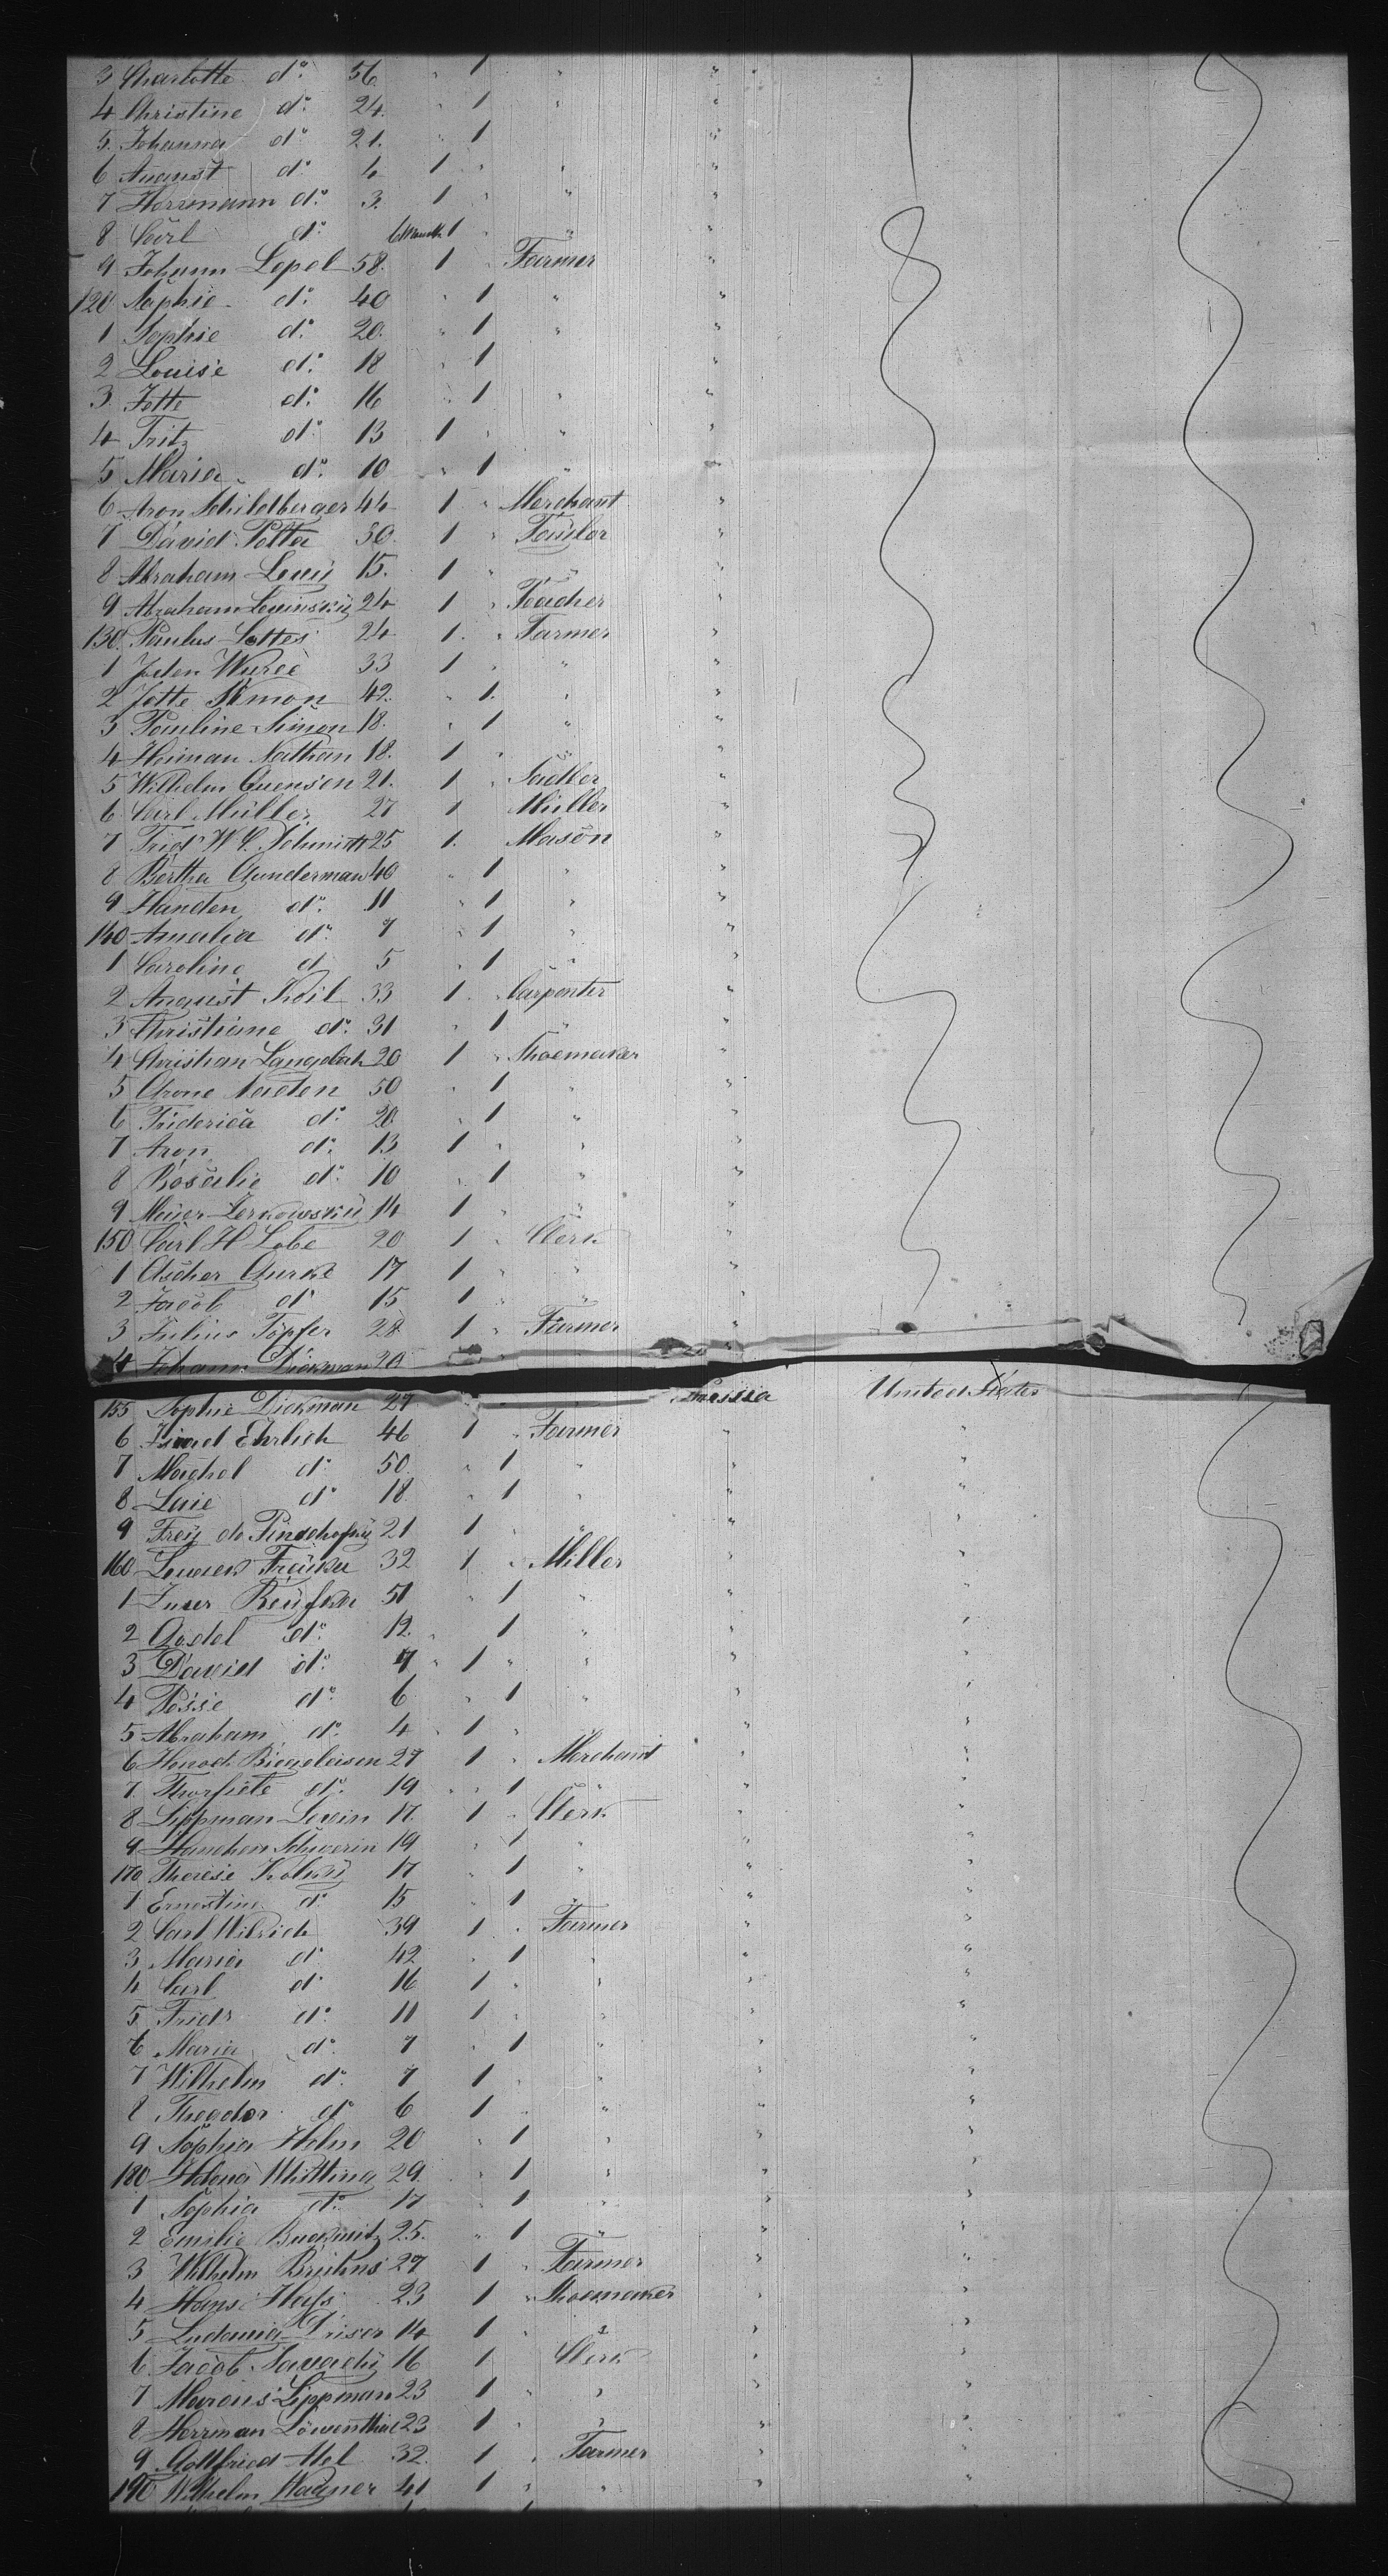 3 Charlotte do. 56 " 1 " "
4 Christine do. 24. " 1 " "
5. Johanna do. 21. " 1 "
6 August do. 4 1 " " "
7 Herrmann do. 3. 1 " " "
8 Carl do. 6 Month 1 " "
9 Johann Lepel 58. 1 " Farmer "
120 Sophie do. 40 " 1 " "
1 Sophie do. 20. " 1 " "
2 Louise do. 18 " 1 "
3. Jette do. 16 " 1 " "
4 Fritz do. 13 1 " " "
5 Maria do. 10 " 1 " "
6 Aron Schildberger 44 1 " Merchant "
7 David Potta 30. 1 " Taylor "
8 Abraham Levy 15. 1 " " "
9 Abraham Levinsky 24 1 " Teacher "
130 Paulus Lottes 24 1. " Farmer "
1 Wurce 33 1 " " "
2 Jette Simon 42. " 1. " "
3 Pauline Simon 18. " 1 " "
4 Heiman Nathan 18. 1 " " "
5 Wilhelm Quensen 21. 1 " Sadler "
6 Carl Müller 27 1 Müller "
7 Fried W. C. Schmitt 25 1. Mason "
8 Bertha Gunderman 40 " 1 " "
9 Hanchen do. 11 " 1 " "
140 Amalia do. 7 " 1 " "
1 Caroline d 5 " 1 " "
2 August Keil 33 1. " Carpenter "
3 Christiane do. 31 " 1 " "
4 Christian 20 1 " Shoemaker "
5 50 " 1 " "
6 Friderica do. 20. " 1 " "
7 Aron do. 13 1 " " "
8 Rosalie do. 10 " 1 " "
9 Meier Zerkowsky 14 1 " " "
150 Carl H Lobe 20 1 " Clerk "
1 Ascher Gurke 17 1 " " "
2 Jacob do 15 1 " " "
3 Julius Töpfer 28 1 " Farmer "
4 Johann Dickman 20
155 Sophie Dickman 27 United States
6 Ehrlich 46 1 " Farmer " "
7 Machel do. 50. " 1 " " "
8 Laie do 18. " 1 " " "
9 21 1 " " " "
160 32 1 " Miller " "
1 51 " 1 " " "
2 do. 12. " 1 " " "
3 David do. 7 " 1 " " " "
4 Pessie do. 6 " 1 " " "
5 Abraham do. 4 " 1 " " "
6 Biegeleisen 27 1 " Merchant " "
7. do. 19 " " 1 " " "
8 Lippman Levin 17. 1 " Clerk " "
9 Hanchen Schwerin 19 " 1 " " "
170 Therese 17 " 1 " " "
1 Ernestine do. 15 " 1 " " "
2 Carl 39 1 " Farmer " "
3 Maria do 42 " 1 " " "
4 Carl do 16 1 " " " "
5 Fridr do. 11 1 " " " "
6 Maria do. 7 " 1 " " "
7 Wilhelm do. 7 1 " " " "
8 Theodor do 6 1 " " " "
9 Sophia Holm 20 " 1 " " "
180 Helena Whitting 29. " 1 " " "
1 Sophia do. 17 " 1 " " "
2 Emilie 25. " 1 " " "
3 Wilhelm Bruhns 27 1 " Farmer " "
4 Hans Hass 23 1 " Shoemaker " "
5 14 1 " " " "
6 Jacob 16 1 Clerk " "
7 Marcus Lippman 23 1 " " " "
8 Herrman Löwenthal 23 1 " " " "
9 Gottfried 32. 1 " Farmer " "
190 Wilhelm Wagner 41 1 " " " "